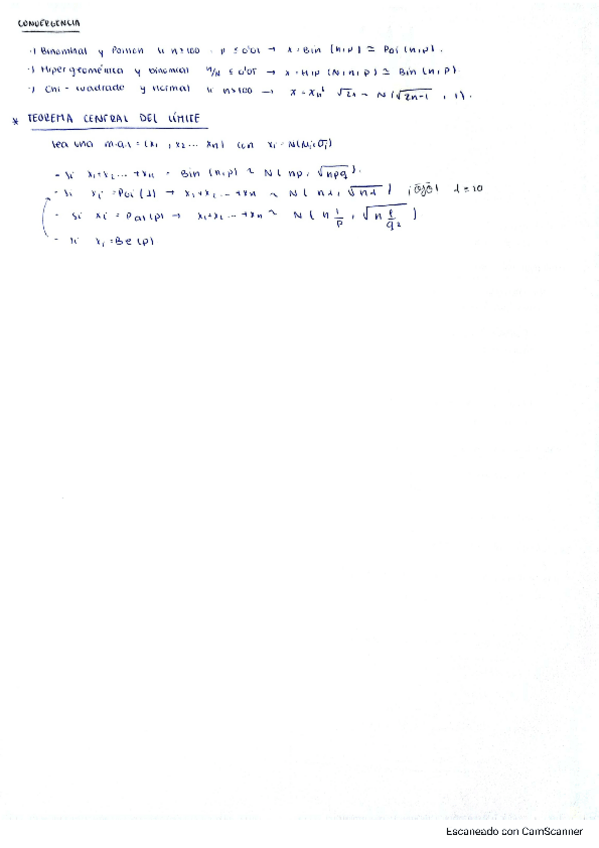 CONVERGENCIA
·) Binominal y Poisson si n>100 · p ≤ 0'01 → X·Bin (n,p) ≃ Poi(n,p).
·) Hipergeométrica y binomial n/N ≤ 0'05 → X·HIP (N,n,p) ≃ Bin (n,p)
·) Chi-cuadrado y normal si n>100 → √2x ~ N(√2n-1, 1).
* TEOREMA CENTRAL DEL LÍMITE
sea una m.a.s = (x₁, x₂... xₙ) con
- Si x₁+x₂...+xₙ = Bin (n,p) ~ N( np, √npq ).
- Si xᵢ = Poi(λ) → x₁+x₂...+xₙ ~ N( nλ, √nλ ) λ=10
- Si → x₁+x₂...+xₙ ~ N( n 1/p, )
- Si xᵢ = Be(p)
Escaneado con CamScanner